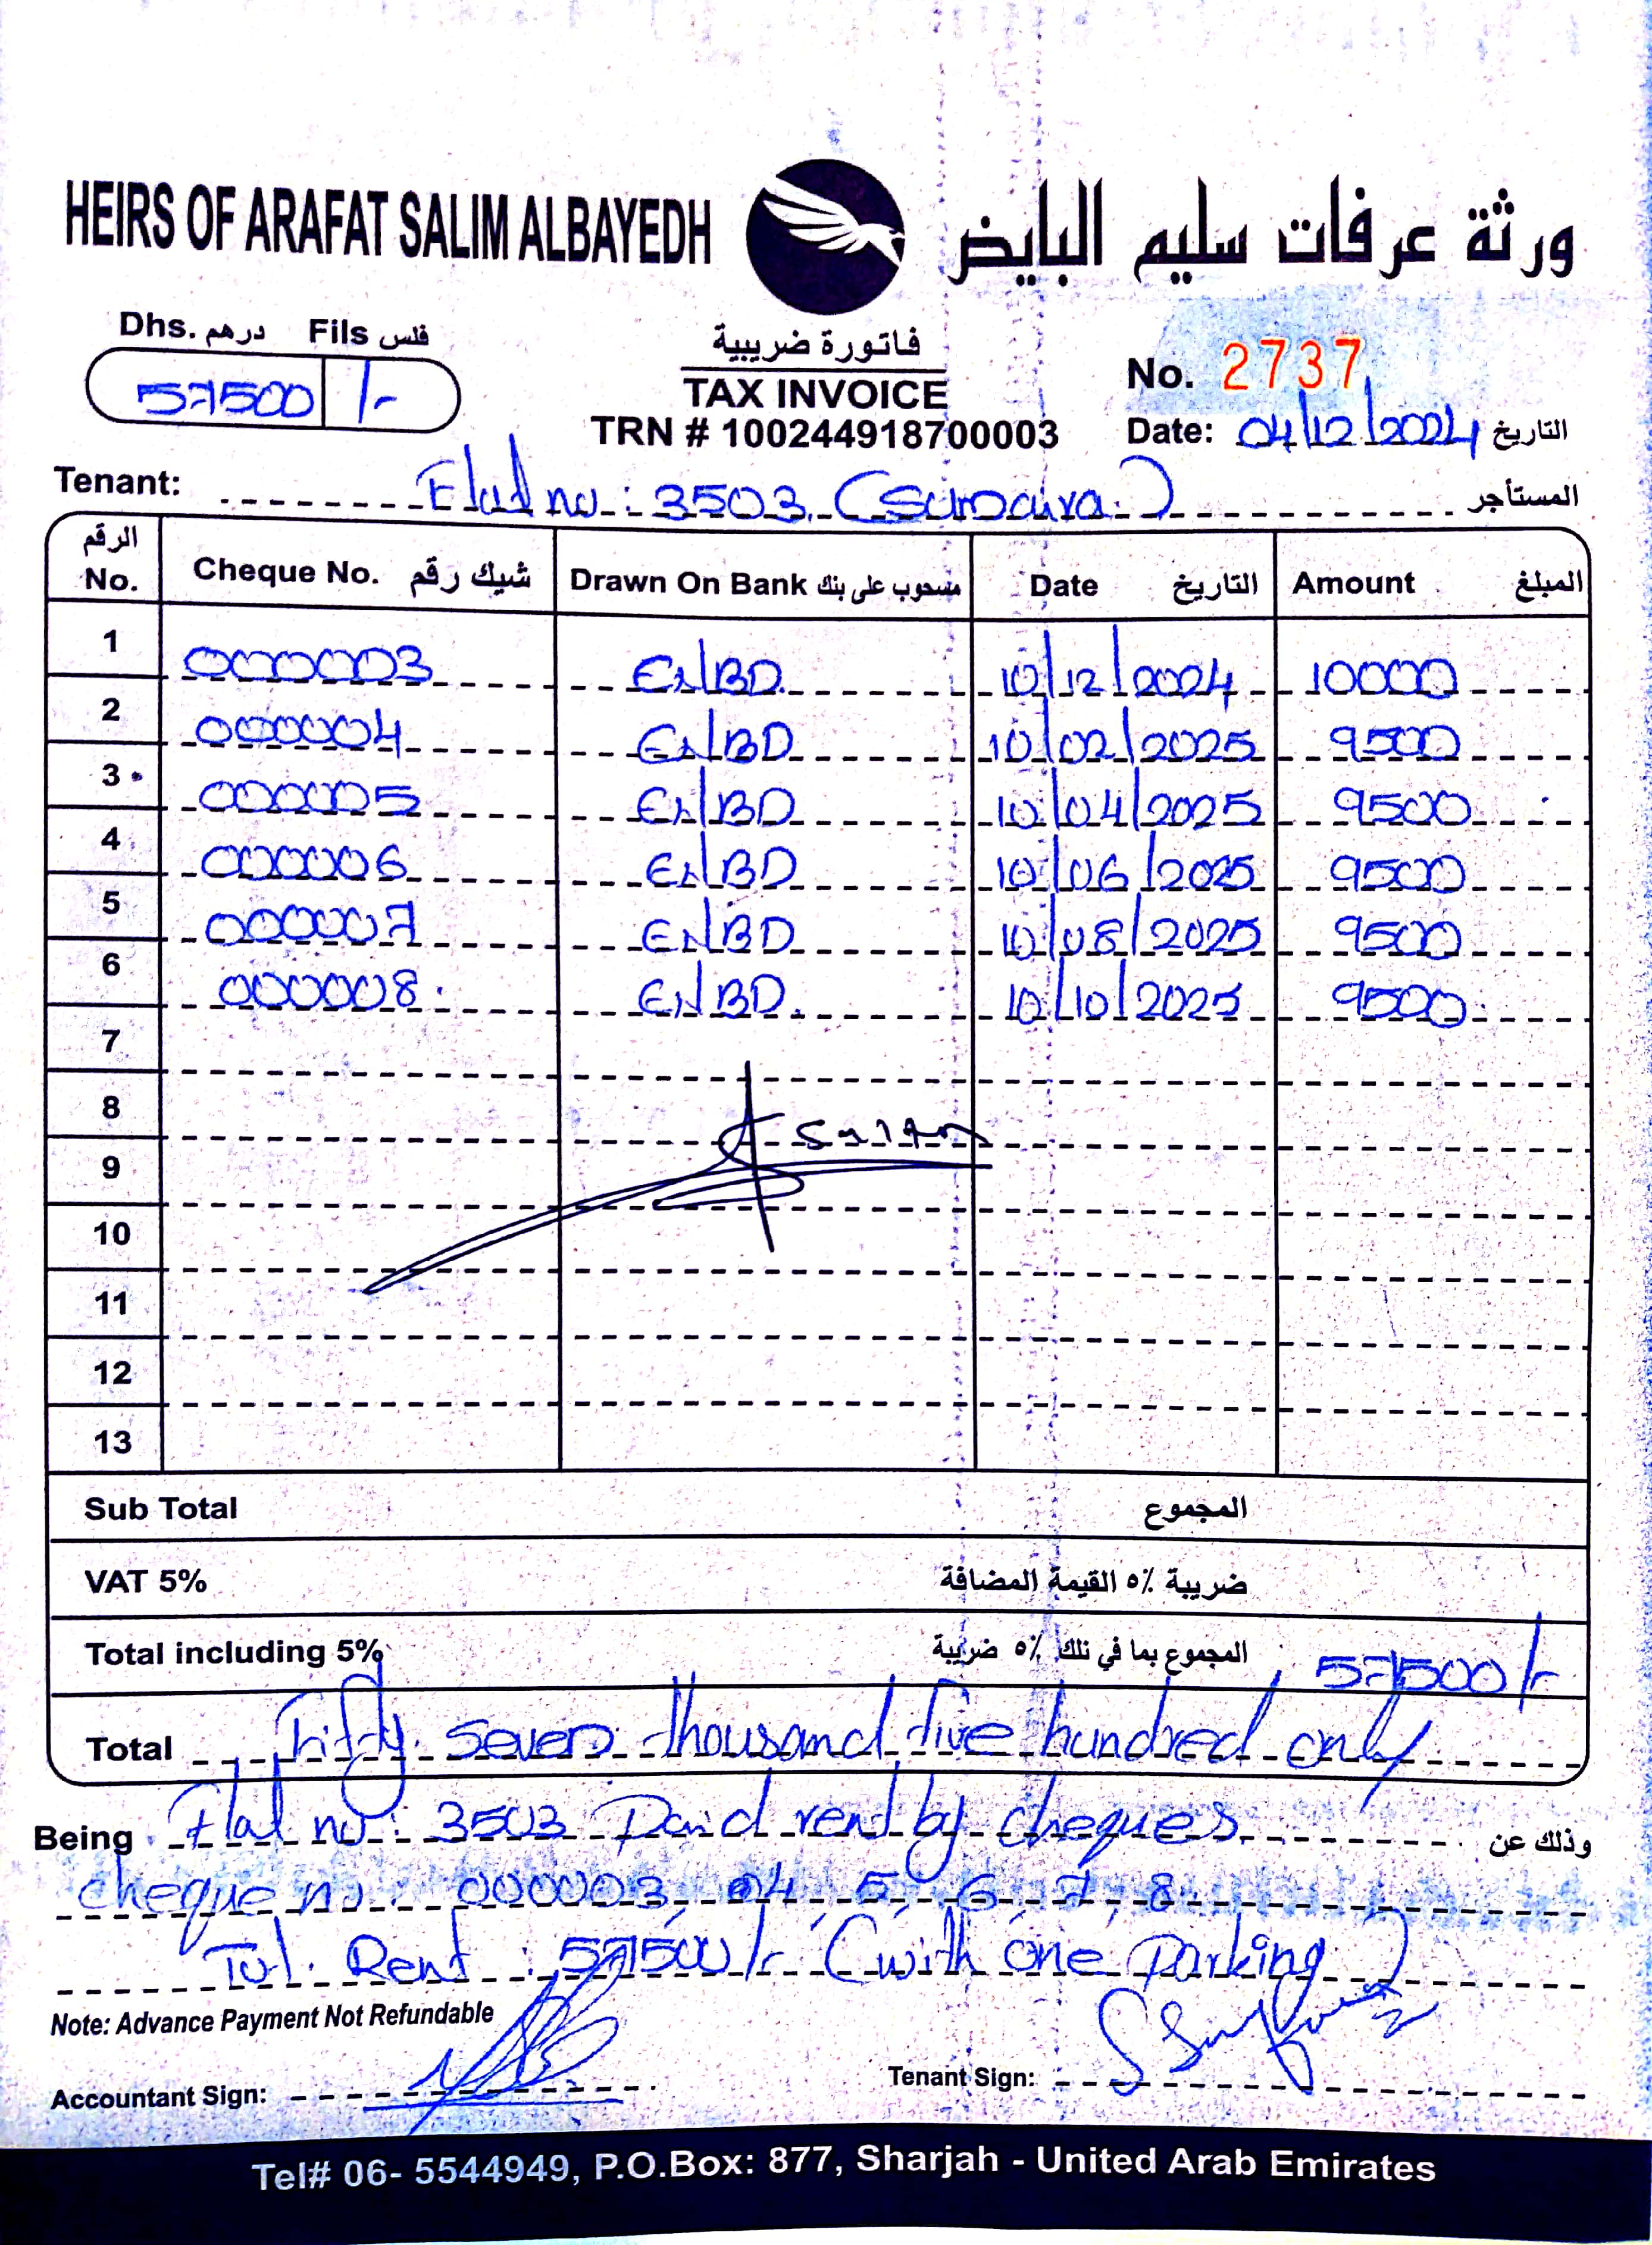 HEIRS OF ARAFAT SALIM ALBAYEDH ورثة عرفات سليم البايض
Dhs. درهم Fils فلس
57500 /-
فاتورة ضريبية
TAX INVOICE
TRN # 100244918700003
No. 2737
Date: 04/12/2024 التاريخ
Tenant: Flat no: 3503 (Sumaiya) المستأجر
الرقم No. Cheque No. شيك رقم Drawn On Bank مسحوب على بنك Date التاريخ Amount المبلغ
1 000003 ENBD 10/12/2024 10000
2 000004 ENBD 10/02/2025 9500
3 000005 ENBD 10/04/2025 9500
4 000006 ENBD 10/06/2025 9500
5 000007 ENBD 10/08/2025 9500
6 000008 ENBD 10/10/2025 9500
7
8
9
10
11
12
13
Sub Total المجموع
VAT 5% ضريبة ٥٪ القيمة المضافة
Total including 5% المجموع بما في ذلك ٥٪ ضريبة 57500/-
Total Fifty Seven thousand five hundred only
Being Flat no: 3503 Paid rent by cheques وذلك عن
cheque no: 000003, 04, 5, 6, 7, 8
Tot. Rent : 57500/- (with one Parking)
Note: Advance Payment Not Refundable
Accountant Sign: Tenant Sign:
Tel# 06- 5544949, P.O.Box: 877, Sharjah - United Arab Emirates